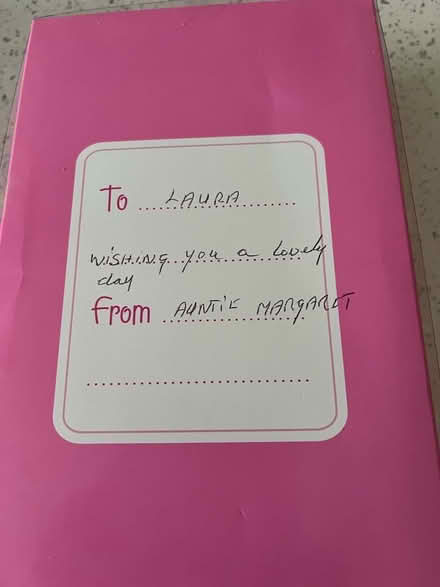 To LAURA
WISHING you a lovely
day
From AUNTIE MARGARET